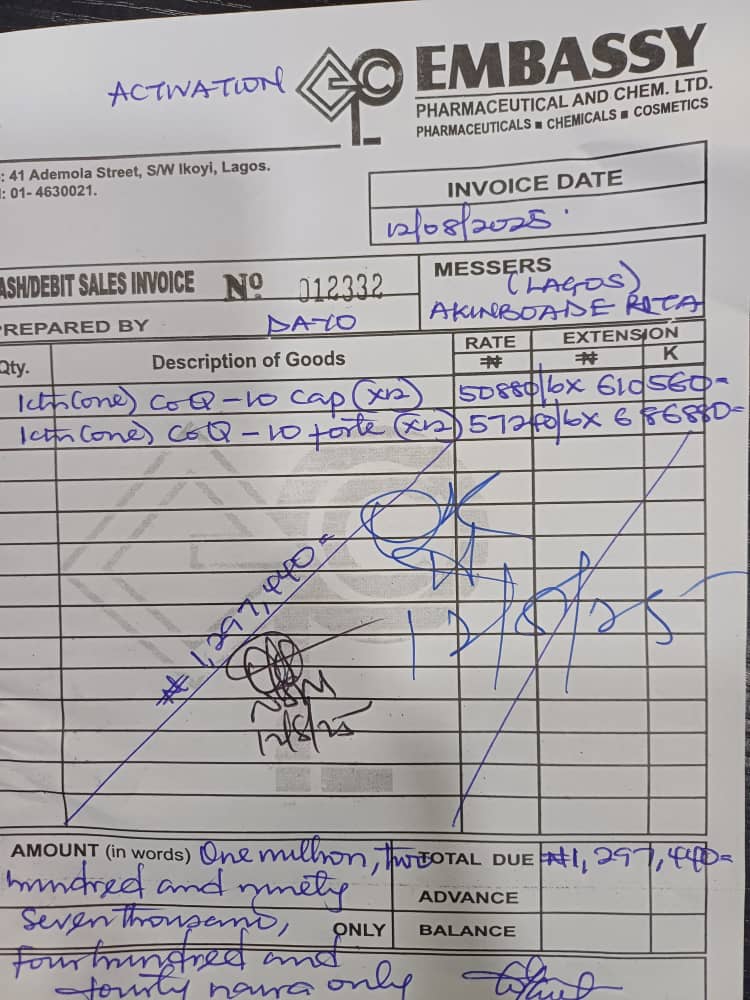 ACTIVATION
EMBASSY
PHARMACEUTICAL AND CHEM. LTD.
PHARMACEUTICALS ■ CHEMICALS ■ COSMETICS
: 41 Ademola Street, S/W Ikoyi, Lagos.
: 01- 4630021.
INVOICE DATE
12/08/2025
ASH/DEBIT SALES INVOICE No 012332
MESSERS
(LAGOS)
AKINBOADE RITA
PREPARED BY DAYO
Qty. Description of Goods RATE ₦ EXTENSION ₦ K
1ctn(one) CoQ-10 cap (x12) 50880/6x 610560=
1ctn(one) CoQ-10 forte (x12) 57240/6x 686880=
OK
12/8/25
₦1,297,440=
NSM
12/8/25
AMOUNT (in words) One million, two
hundred and ninety
seven thousand,
ONLY
four hundred and
fourty naira only
TOTAL DUE ₦1,297,440=
ADVANCE
BALANCE